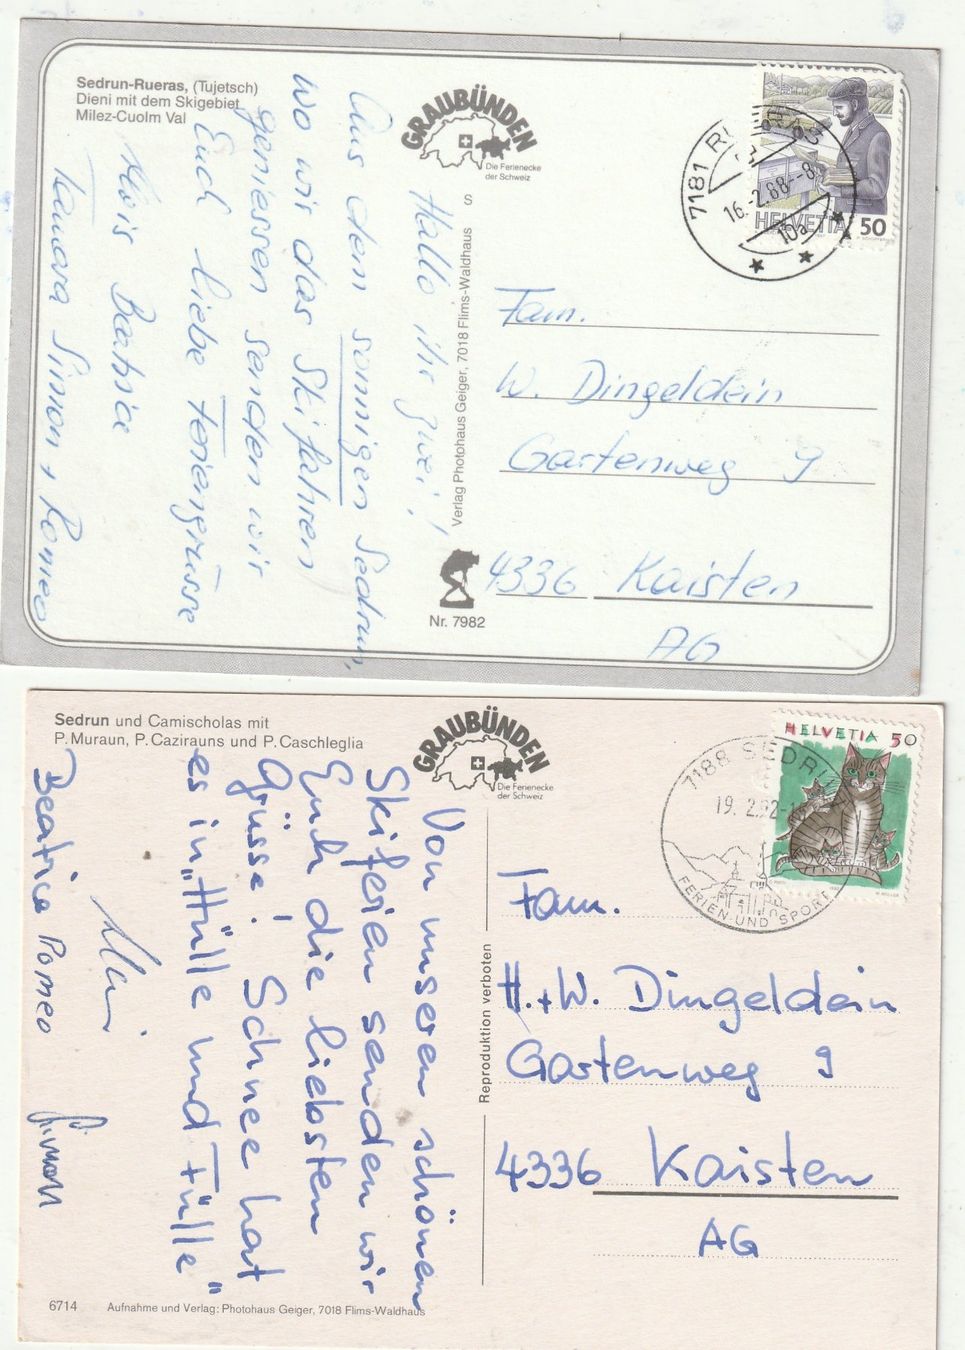 Sedrun-Rueras, (Tujetsch)
Dieni mit dem Skigebiet
Milez-Cuolm Val
GRAUBÜNDEN
Die Ferienecke
der Schweiz
HELVETIA 50
7181 RUERAS
16.-2.88--8
10a
Hallo ihr zwei!
Aus dem sonnigen Sedrun,
wo wir das Skifahren
geniessen senden wir
Euch liebe Feriengrüsse
Alois Beatrice
Tamara Simon + Romeo
S
Verlag Photohaus Geiger, 7018 Flims-Waldhaus
Nr. 7982
Fam.
W. Dingeldein
Gartenweg 9
4336 Kaisten
AG
Sedrun und Camischolas mit
P. Muraun, P. Cazirauns und P. Caschleglia
GRAUBÜNDEN
Die Ferienecke
der Schweiz
HELVETIA 50
7188 SEDRUN
19. 2.92-18
FERIEN- UND SPORT
Von unseren schönen
Skiferien senden wir
Euch die liebsten
Grüsse! Schnee hat
es in "Hülle und Fülle"
Beatrice Romeo Simon
Reproduktion verboten
Fam.
H.+W. Dingeldein
Gartenweg 9
4336 Kaisten
AG
6714 Aufnahme und Verlag: Photohaus Geiger, 7018 Flims-Waldhaus